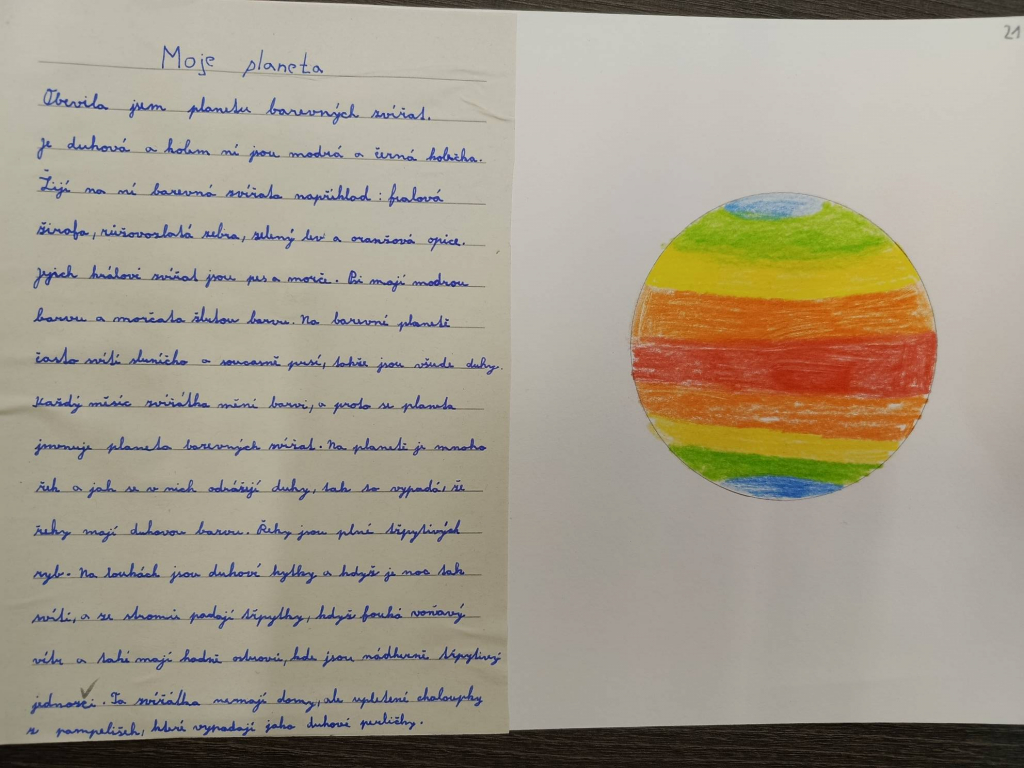 Moje planeta
21
Obevila jsem planetu barevných zvířat.
Je duhová a kolem ní jsou modrá a černá kolečka.
Žijí na ní barevná zvířata například: fialová
žirafa, růžovozlatá zebra, zelený lev a oranžová opice.
Jejich králové zvířat jsou pes a morče. Psi mají modrou
barvu a morčata žlutou barvu. Na barevní planetě
často svítí sluníčko a současně prší, takže jsou všude duhy.
Každý měsíc zvířátka mění barvi, a proto se planeta
jmenuje planeta barevných zvířat. Na planetě je mnoho
řek a jak se v nich odrážejí duhy, tak to vypadá, že
řeky mají duhovou barvu. Řeky jsou plné třpytivých
ryb. Na loukách jsou duhové kytky a když je noc tak
svítí, a ze stromů padají třpytky, když fouká voňavý
vítr a také mají hodně ostrovů, kde jsou nádherně třpytivý
jednošci. Ta zvířátka nemají domy, ale upletené chaloupky
z pampelišek, které vypadají jako duhové perličky.